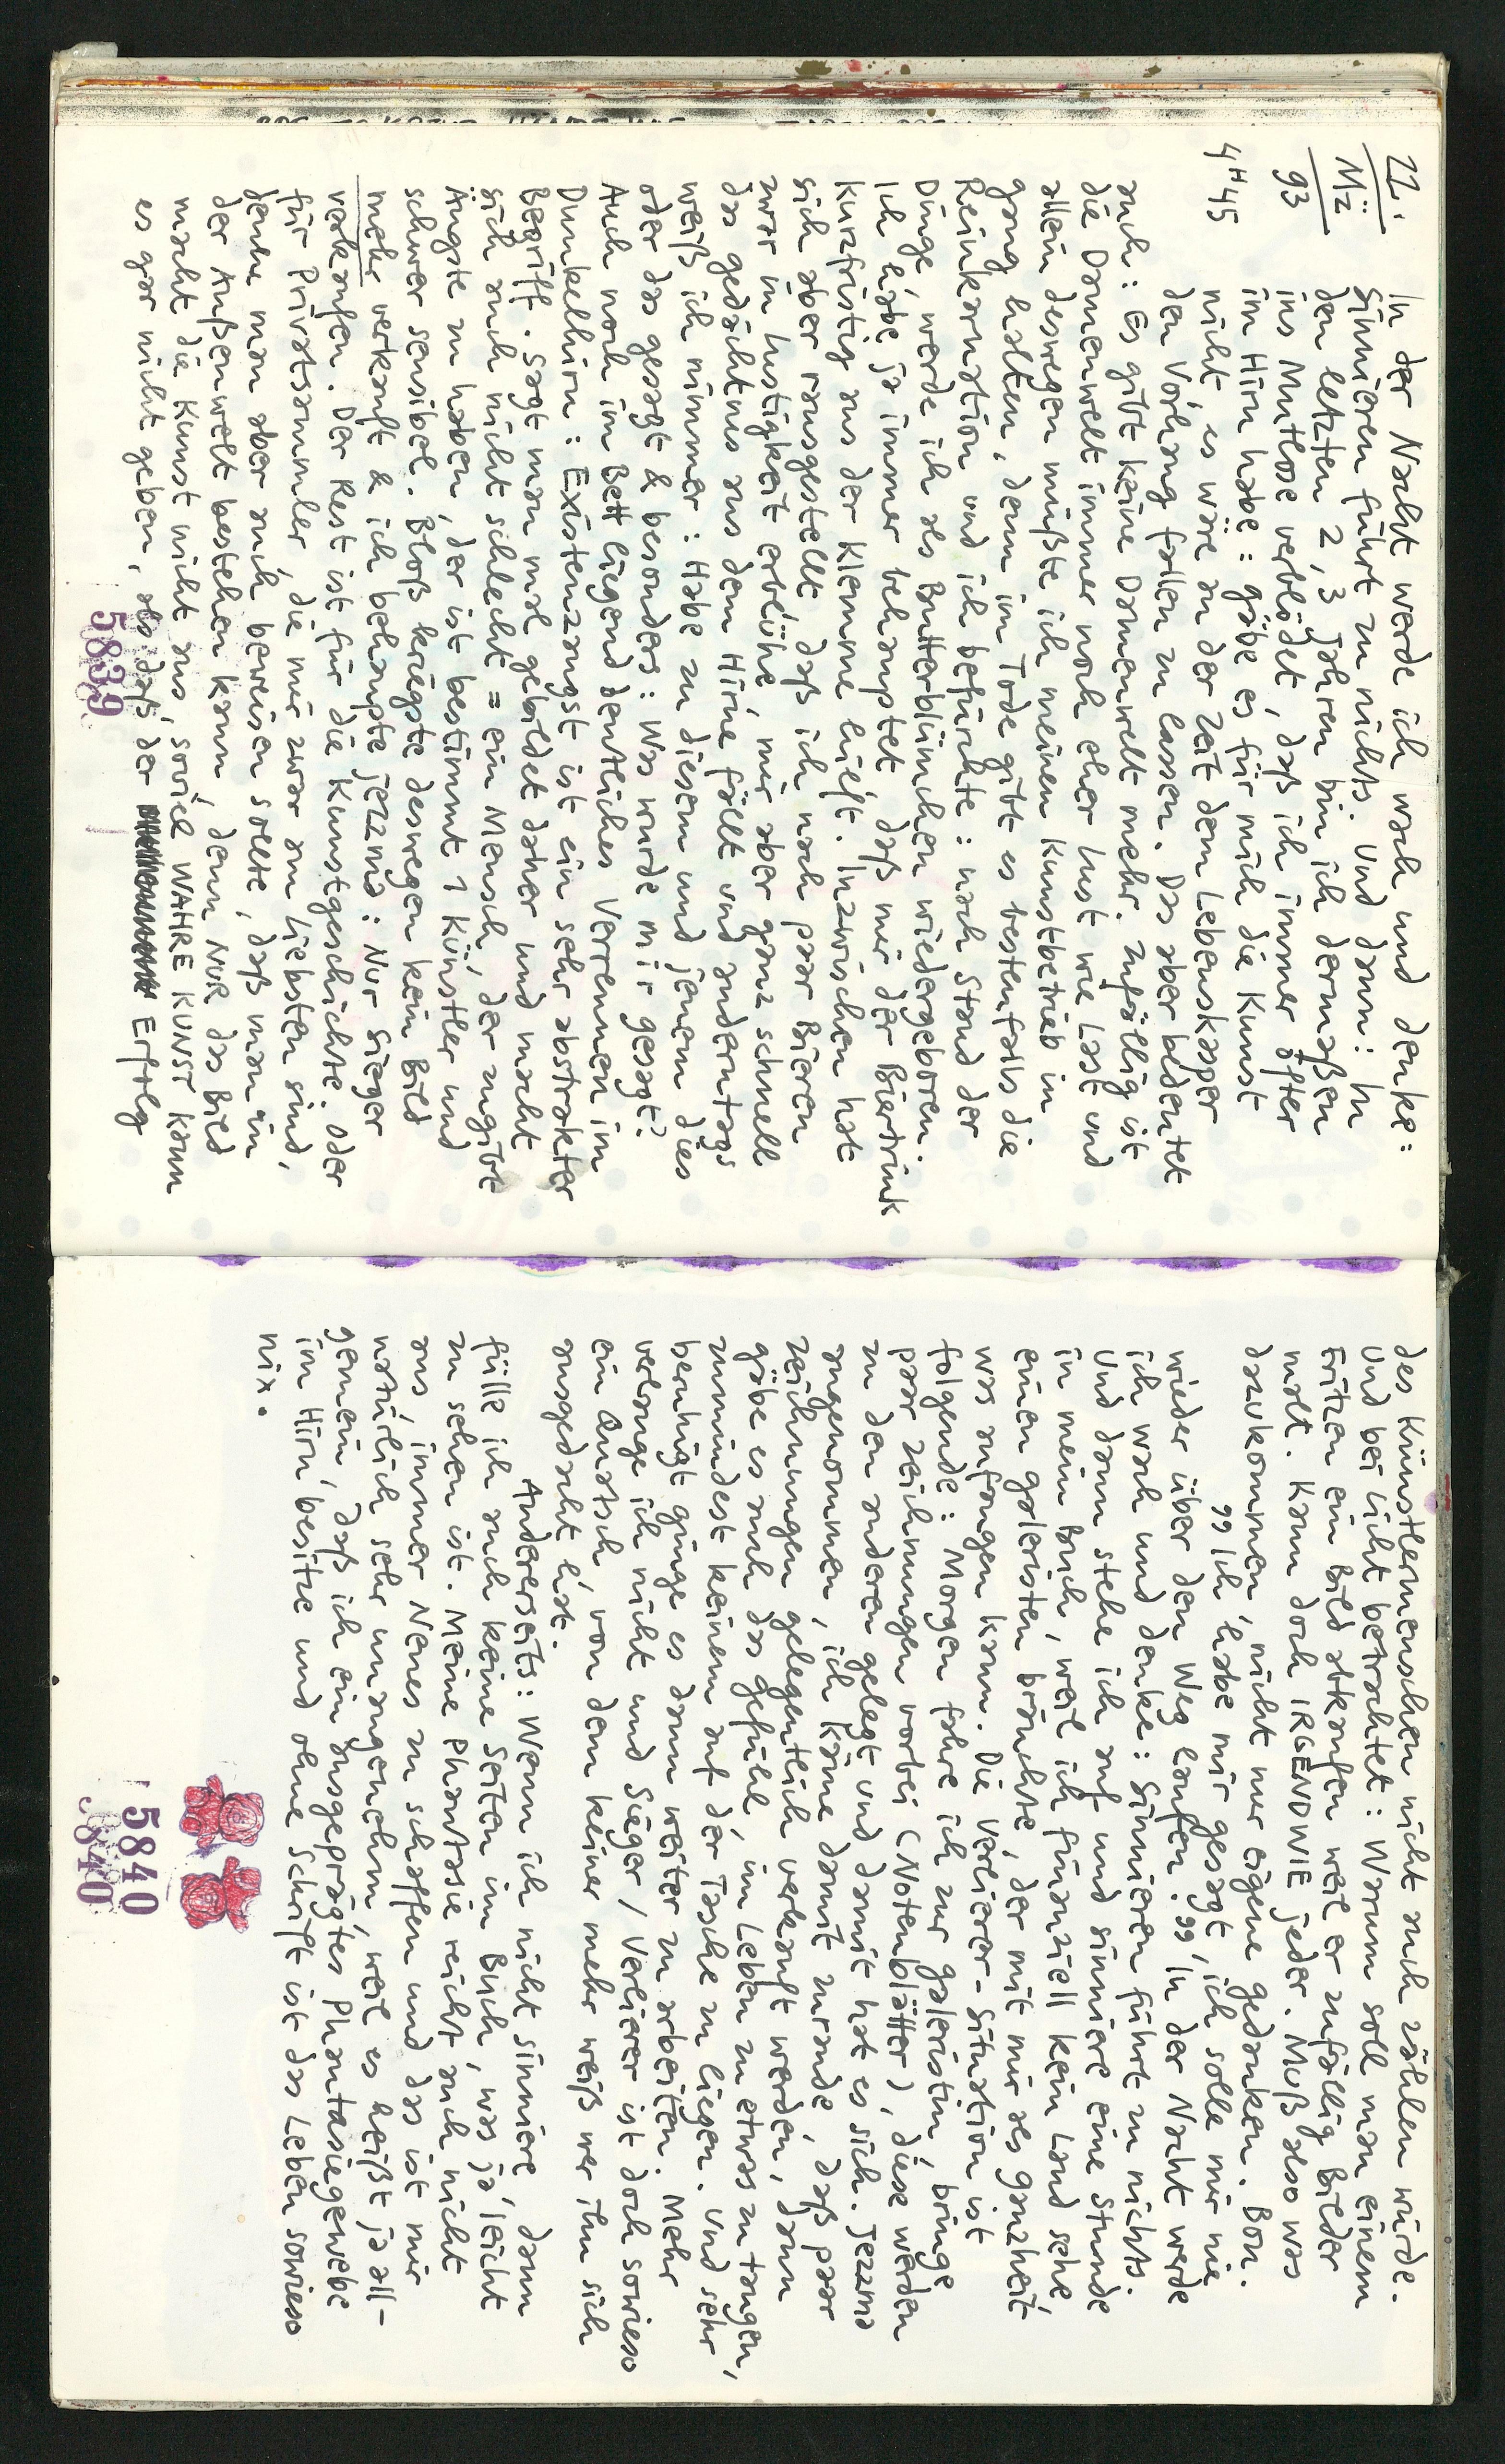 22.
Mz
93
4H45
In der Nacht werde ich wach und denke:
Sinnieren führt zu nichts. Und dann: In
den letzten 2, 3 Jahren bin ich dermaßen
ins Mutlose verblödet, daß ich immer öfter
im Hirn habe: gäbe es für mich die Kunst
nicht, es wäre an der Zeit dem Lebenskasper
den Vorhang fallen zu lassen. Das aber bedeutet
auch: Es gibt keine Damenwelt mehr. Zufällig ist
die Damenwelt immer noch eher Lust wie Last und
allein deswegen müßte ich meinen Kunstbetrieb in
gang halten, denn im Tode gibt es bestenfalls die
Reinkarnation und ich befürchte: nach Stand der
Dinge, werde ich als Butterblümchen wiedergeboren.
Ich habe ja immer behauptet daß mir der Biertrink
kurzfristig aus der Klemme hilft. Inzwischen hat
sich aber rausgestellt daß ich nach paar Bieren
zwar in Lustigkeit erblühe, mir aber ganz schnell
das gedächtnis aus dem Hirne fällt und anderntags
weiß ich nimmer: Habe zu diesem und jenem dies
oder das gesagt & besonders: Was wurde mir gesagt?
Auch noch im Bett liegend deutliches Verrennen im
Dunkelhirn: Existenzangst ist ein sehr abstrakter
Begriff. Sagt man mal gebildet daher und macht
sich auch nicht schlecht = ein Mensch, der zugibt
Ängste zu haben, der ist bestimmt 1 Künstler und
schwer sensibel. Bloß kriegste deswegen kein Bild
mehr verkauft & ich behaupte jezzma: Nur Sieger
verkaufen. Der Rest ist für die Kunstgeschichte. Oder
für Privatsammler, die mir zwar am liebsten sind,
denne man aber auch beweisen sollte, daß man in
der Außenwelt bestehen kann, denn NUR das Bild
macht die Kunst nicht aus, soviel WAHRE KUNST kann
es gar nicht geben, als daß der Erfolg
5839
des Künstlermenschen nicht auch zählen würde.
Und bei Licht betrachtet: Warum soll man einem
Fritzen ein Bild abkaufen weil er zufällig Bilder
malt. Kann doch IRGENDWIE jeder. Muß also was
dazukommen, nicht nur eigene gedanken. Bon.
"Ich habe mir gesagt, ich solle mir nie
wieder über den Weg laufen." In der Nacht werde
ich wach und denke: Sinnieren führt zu nichts.
Und dann stehe ich auf und sinniere eine Stunde
in mein Buch, weil ich finanziell kein Land sehe,
einen galeristen bräuchte, der mit mir als ganzheit
was anfangen kann. Die Verlierer-Situation ist
folgende: Morgen fahre ich zur galeristin, bringe
paar Zeichnungen vorbei (Notenblätter), diese werden
zu den anderen gelegt und damit hat es sich. Jezzma
angenommen, ich käme damit zurande, daß paar
Zeichnungen gelegentlich verkauft werden, dann
gäbe es auch das gefühl, im Leben zu etwas zu taugen,
zumindest keinem auf der Tasche zu liegen. Und sehr
beruhigt ginge es dann weiter zu arbeiten. Mehr
verlange ich nicht und Sieger / Verlierer ist doch sowieso
ein Quatsch von dem keiner mehr weiß wer ihn sich
ausgedacht hat.
Andererseits: Wenn ich nicht sinniere, dann
fülle ich auch keine Seiten im Buch, was ja leicht
zu sehen ist. Meine Phantasie reicht auch nicht
aus, immer Neues zu schaffen und das ist mir
natürlich sehr unangenehm, weil es heißt ja all-
gemein, daß ich ein ausgeprägtes Phantasiegewebe
im Hirn besitze und ohne Schrift ist das Leben sowieso
nix.
5840
840